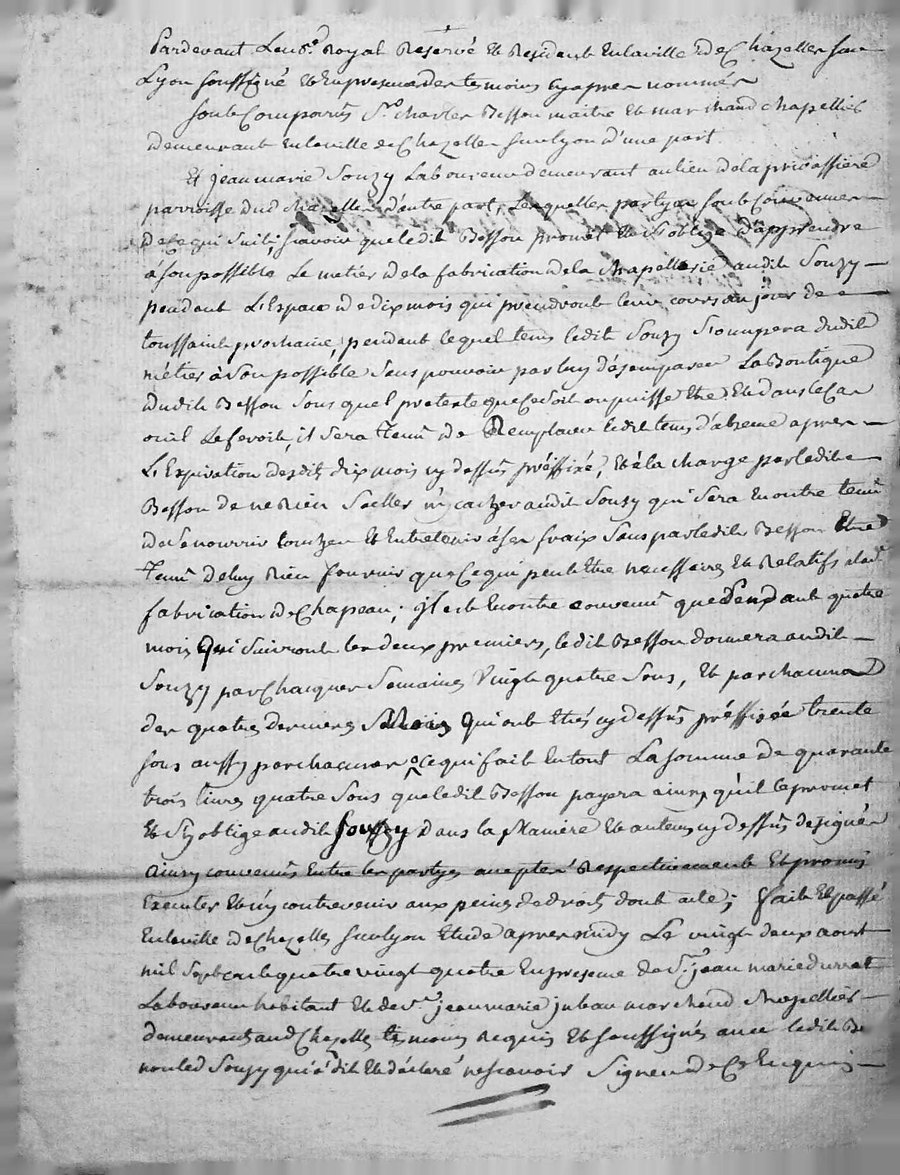 Pardevant Le no.re Royal Reservé Et Resident En la ville de Chazelles sur
Lyon soussigné Et En presence des temoins cy apres nommés
sont Comparûs S.r charles Besson maitre Et marchand chapellier
demeurant En la ville de Chazelles sur lyon d'une part
Et jean marie Souzy Laboureur demeurant au lieu de la
parroisse dud Chazelles d'autre part, Lesquelles partyes sont Convenues
de Ce qui Suit, scavoir que ledit Besson promet Et s'oblige d'apprendre
à son possible Le metier de la fabrication de la Chapellerie audit Souzy
pendant L'Espace de dix mois qui prendront leur cours au jour de
toussaint prochaine, pendant lequel tems ledit Souzy s'ocupera dudit
métier à Son possible Sans pouvoir par luy désemparer La Boutique
dudit Besson Sous quel pretexte que Ce soit ou puisse Etre Et dans le Cas
ou il Le feroit, il Sera Tenû de Remplacer ledit tems d'absence apres
L'Expiration desdits dix mois cy dessûs préffixé, Et à la charge par ledit
Besson de ne Rien Celler n'y cacher audit Souzy qui Sera En outre tenû
de Se nourrir coucher Et Entretenir à Ses fraix Sans par ledit Besson Etre
Tenû de luy Rien fournir que Ce qui peut Etre necessaire Et Relatifs a lad.e
fabrication de Chapeau ; jl est En outre convenû que Pendant quatre
mois Qui Suivront les deux premiers, ledit Besson donnera audit
Souzy par Chacques Semaines Vingt quatre Sous, Et par chacune
des quatre dernieres Mois Qui ont Etés cy dessûs préffixée trente
sous aussy par chacunes Ce qui fait En tout La somme de quarante
trois livres quatre Sous que ledit Besson payera ainsy qu'il le promet
Et S'y oblige audit Souzy dans la Maniere Et au tems cy dessûs designés
ainsy convenûs Entre les partyes accepté Respectivement Et promis
Executer Et n'y contrevenir aux peines de droits dont acte ; fait Et passé
En la ville de Chazelles sur lyon Etude apres midy Le vingt deux aoust
mil Sept cent quatre vingt quatre En presence de S.r jean marie
Laboureur habitant Et de S.r jean marie juban marchand Chapellier
demeurants aud Chazelles temoins Requis Et soussignés avec ledit Be
non led Souzy qui a dit Et déclaré ne scavoir Signer de Ce Enquis